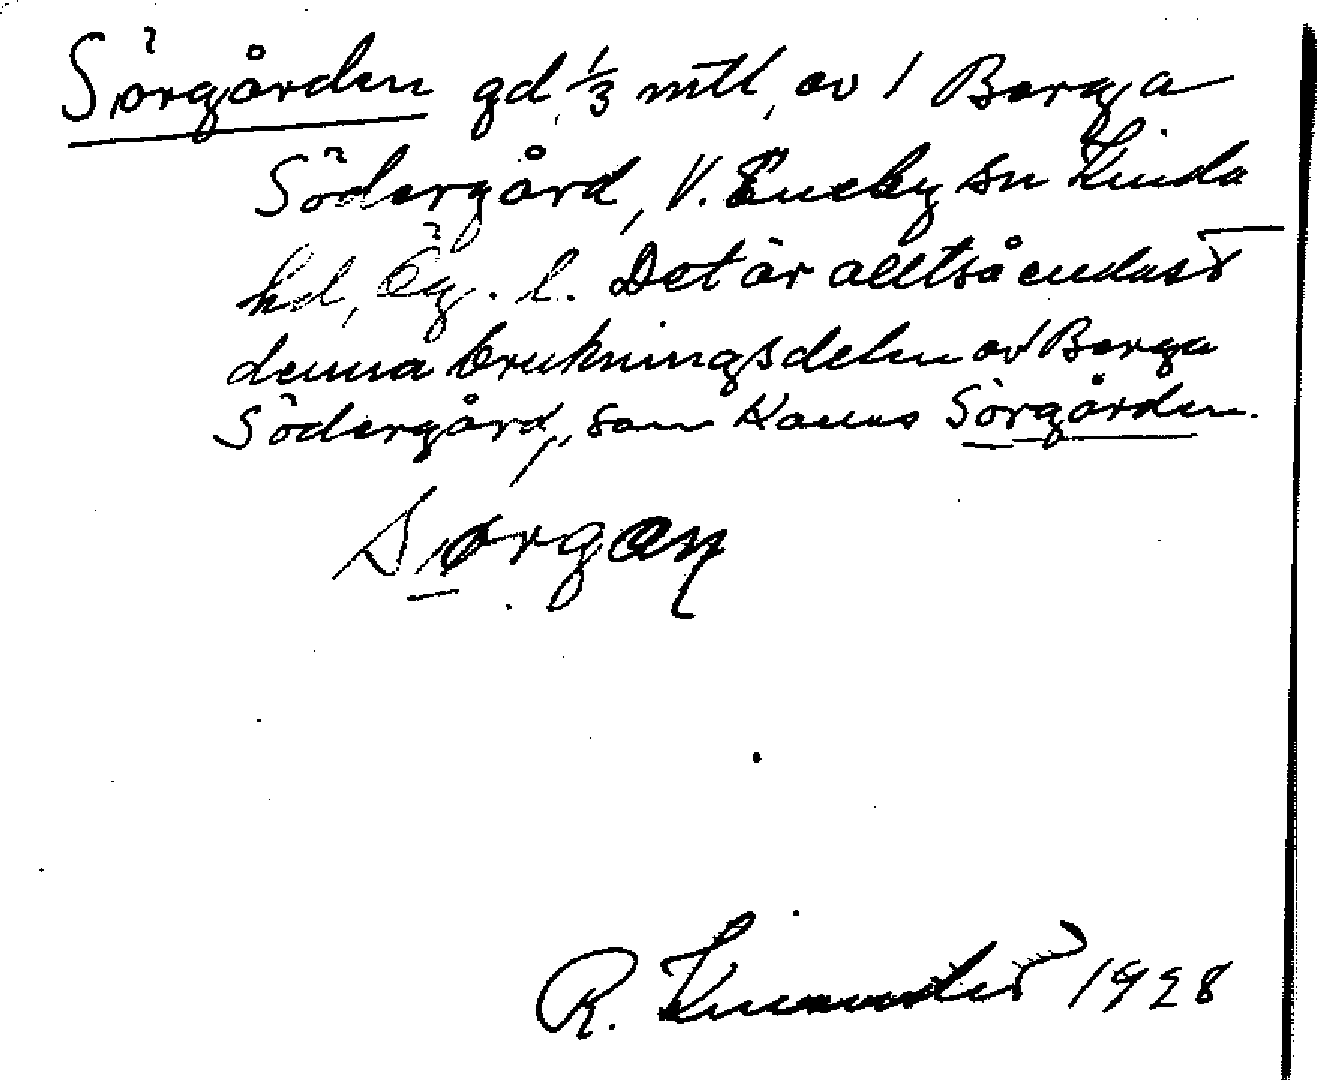 Sörgården gd 1/3 mtl, av 1 Berga
Södergård, V. Eneby sn Kinda
hd, Ög. l. Det är alltså endast
denna brukningsdelen av Berga
Södergård, som kallas Sörgården.
R. 1928